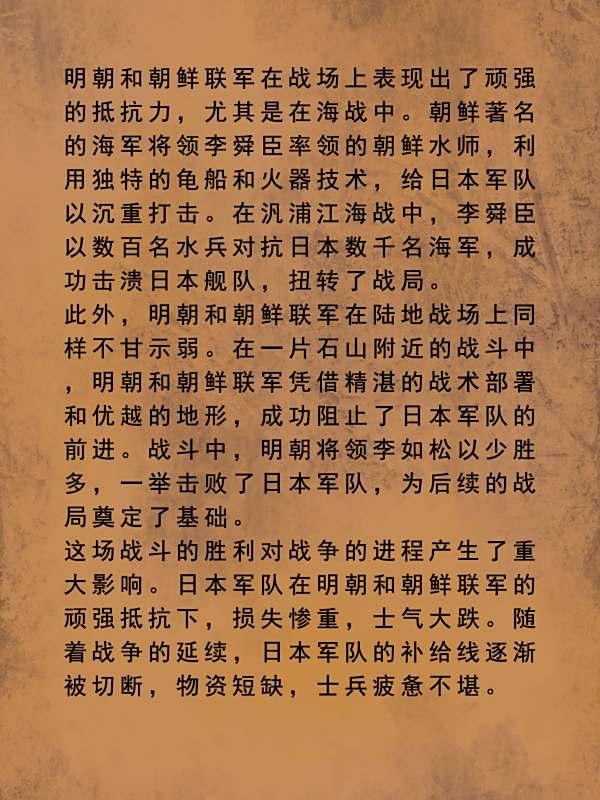 明朝和朝鲜联军在战场上表现出了顽强
的抵抗力，尤其是在海战中。朝鲜著名
的海军将领李舜臣率领的朝鲜水师，利
用独特的龟船和火器技术，给日本军队
以沉重打击。在汎浦江海战中，李舜臣
以数百名水兵对抗日本数千名海军，成
功击溃日本舰队，扭转了战局。
此外，明朝和朝鲜联军在陆地战场上同
样不甘示弱。在一片石山附近的战斗中
，明朝和朝鲜联军凭借精湛的战术部署
和优越的地形，成功阻止了日本军队的
前进。战斗中，明朝将领李如松以少胜
多，一举击败了日本军队，为后续的战
局奠定了基础。
这场战斗的胜利对战争的进程产生了重
大影响。日本军队在明朝和朝鲜联军的
顽强抵抗下，损失惨重，士气大跌。随
着战争的延续，日本军队的补给线逐渐
被切断，物资短缺，士兵疲惫不堪。